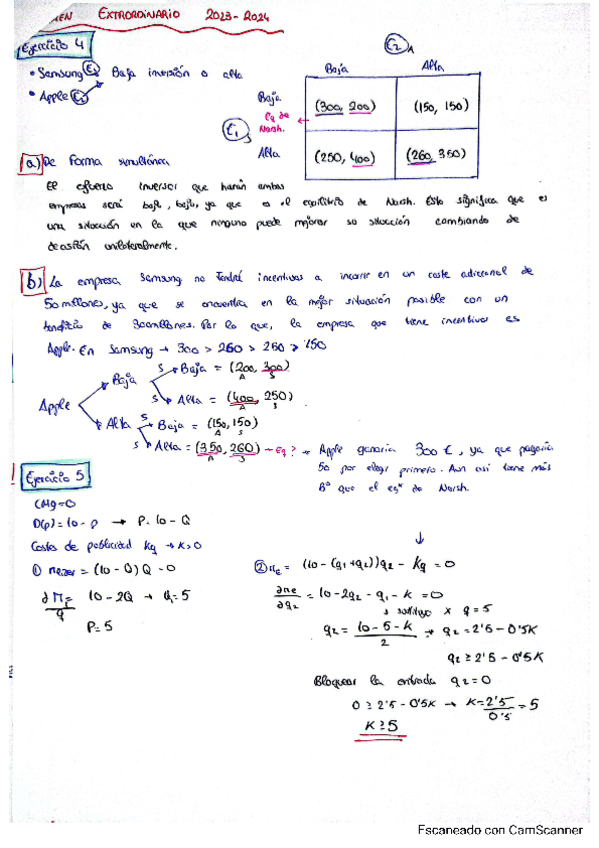 EXTRAORDINARIO 2023-2024
Ejercicio 4
• Samsung E₁ Baja inversión o alta
• Apple E₂
E₂ A
Baja Alta
Baja (300, 200) (150, 150)
Eq de Nash.
E₁ S
Alta (250, 400) (260, 350)
a) De forma simultánea
El esfuerzo inversor que harán ambas
empresas será baja, baja, ya que es el equilibrio de Nash. Esto significa que es
una situación en la que ninguno puede mejorar su situación cambiando de
decisión unilateralmente.
b) La empresa Samsung no tendrá incentivos a incurrir en un coste adicional de
50 millones, ya que se encuentra en la mejor situación posible con un
beneficio de 300 millones. Por lo que, la empresa que tiene incentivos es
Apple. En Samsung → 300 > 260 > 250 > 150
Apple
Baja S Baja = (200, 300)
A S
S Alta = (400, 250)
A S
Alta S Baja = (150, 150)
A S
S Alta = (350, 260) → Eq? → Apple ganaría 300 €, ya que pagaría
A S
50 por elegir primero. Aun así tiene más
Bº que el eqº de Nash.
Ejercicio 5
CMg=0
D(p)=10-p → P=10-Q
Costes de publicidad Kq → K>0
① = (10-Q)Q-0
= 10-2Q → Q=5
P=5
② = (10-(q₁+q₂))q₂ - Kq = 0
= 10-2q₂-q₁-k=0
sustituyo x q=5
q₂ = 10-5-k / 2 → q₂=2'5-0'5K
q₂ ≥ 2'5-0'5K
Bloquear la entrada q₂=0
0 ≥ 2'5-0'5K → K=2'5/0'5=5
K≥5
Escaneado con CamScanner